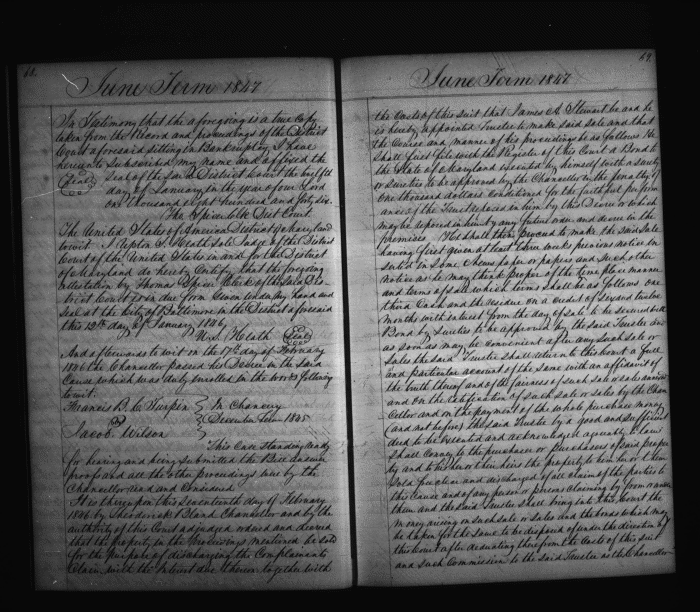 68.
June Term 1847
In Testimony that the aforegoing is a true Copy
taken from the Record and proceedings of the District
Court aforesaid sitting in Bankruptcy I have
hereunto Subscribed my name and affixed the
Seal
Seal of the said District Court the twelfth
day of January in the year of our Lord
one thousand eight hundred and forty six.
Tho Spicer Clk Dist Court
The United States of America District of Maryland
to wit. I Upton S. Heath sole Judge of the District
Court of the United States in and for the District
of Maryland do hereby Certify that the foregoing
attestation by Thomas Spicer Clerk of the said Dis-
trict Court is in due form Given under my hand and
Seal at the City of Baltimore in the District aforesaid
this 12th day of January 1846,
U. S. Heath Seal
And afterwards to wit on the 17th day of February
1846 the Chancellor passed his Decree in the said
Cause which was duly enrolled in the words following
to wit.
Francis B. C. Turpin } In Chancery
vs } December Term 1845
Jacob Wilson }
This Case standing ready
for hearing and being submitted the Bill answer
proofs and all the other proceedings were by the
Chancellor read and Considered
It is thereupon this Seventeenth day of February
1846 by Theodorick Bland Chancellor and by the
authority of this Court adjudged ordered and decreed
that the property in the proceedings mentioned be sold
for the purpose of discharging the Complainants
Claim with the Interest due thereon together with
69.
June Term 1847
the Costs of this suit that James A. Stewart be and he
is hereby appointed Trustee to make said sale and that
the Course and manner of his proceedings be as follows He
shall first file with the Register of this Court a Bond to
the State of Maryland executed by himself with a surety
or sureties to be approved by the Chancellor in the penalty of
one thousand dollars conditioned for the faithful perform
ance of the Trust reposed in him by this Decree or which
may be reposed in him by any future order and decree in the
premises. He shall then proceed to make the said sale
having first given at least three weeks previous notice in-
serted in some News paper or papers and such other
notice as he may think proper of the time place manner
and terms of sale which terms shall be as follows one
third Cash and the residue on a credit of six and twelve
months with interest from the day of sale to be secured by
Bond by sureties to be approved by the said Trustee and
as soon as may be convenient after any such sale or
sales the said Trustee shall return to this Court a full
and particular account of the same with an affidavit of
the truth thereof and of the fairness of such sale or sales annexed
and on the ratification of such sale or sales by the Chan
Cellor and on the payment of the whole purchase money
and not before the said Trustee by a good and sufficient
deed to be executed and acknowledged agreeably to law
shall Convey to the purchaser or purchasers of said proper
ty and to his her or their heirs the property to him her or them
sold free clear and discharged of all claim of the parties to
this Cause and of any person or persons claiming by from or under
them and the said Trustee shall bring into this Court the
money arising on such sale or sales and the bonds which may
be taken for the same to be disposed of under the direction of
this Court after deducting therefrom the Costs of this suit
and such Commission to the said Trustee as the Chancellor